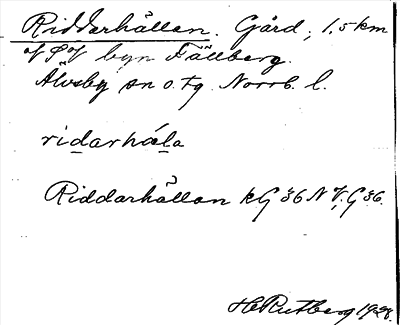 Riddarhällan. Gård, 1,5 km
af S of byn Fällberg.
Älvsby sn o. tg Norrb. l.
ridarhála
Riddarhällan kG 36 NV, G 36.
H Rutberg 1928.